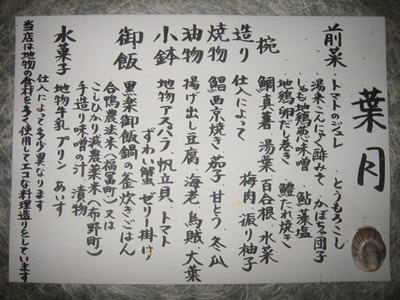 葉月
前菜 ・トマトのジュレ ・とうもろこし
・湯来こんにゃく酢みそ ・かぼちゃ団子
・しゃも地鶏 味噌 ・鮎藻塩
・地鶏卵だし巻き ・鱧たれ焼き
椀 鯛真薯 湯葉 百合根 水菜
梅肉 振り柚子
造り 仕入によって
焼物 鯧西京焼き 茄子 甘とう 冬瓜
油物 揚げ出し豆腐 海老 烏賊 大葉
小鉢 地物アスパラ 帆立貝 トマト
ずわい蟹 ゼリー掛け
御飯 黒楽御飯鍋の釜炊きごはん
合鴨農法米(福富町)又は
こしひかり減農薬米(布野町)
手造り味噌の汁 漬物
水菓子 地物牛乳プリン あいす
仕入によって多少異なります
当店は地物の食材を多く使用してエコな料理造りをしています